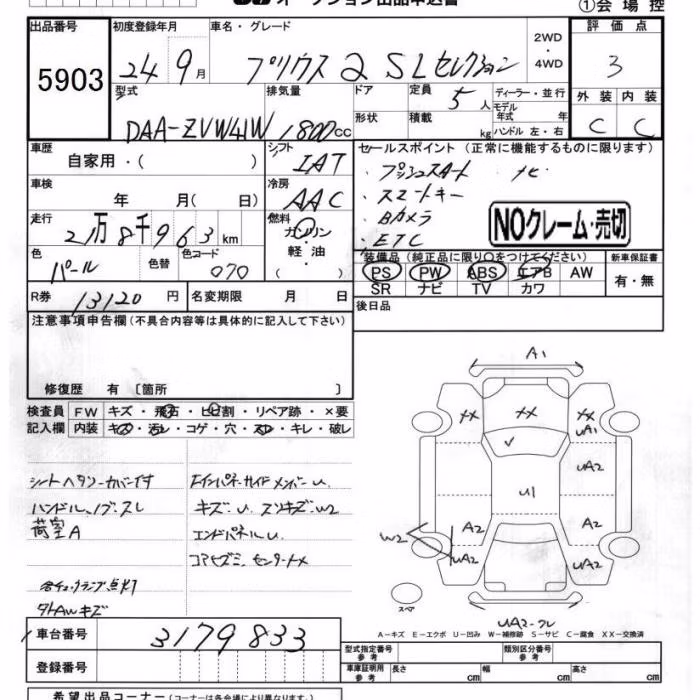 オークション出品申込書
①会場控
出品番号 初度登録年月 車名・グレード 2WD 評価点
5903 24 9月 プリウス α SLセレクション ・4WD 3
型式 排気量 ドア 定員 5人 ディーラー・並行 外装 内装
モデル年式 年式
DAA-ZVW41W 1800cc 形状 積載 kg ハンドル 左・右 C C
車歴 シフト セールスポイント(正常に機能するものに限ります)
自家用・( ) IAT ・プッシュスタート ナビ
車検 冷房 ・スマートキー
年 月( 日) AAC ・Bカメラ
走行 燃料 ・ETC
2万8千963km ガソリン・軽油・( )
NOクレーム・売切
色 色替 色コード 装備品(純正品に限り○をつけてください) 新車保証書
パール 070 PS PW ABS エアB AW 有・無
SR ナビ TV カワ
R券 13120円 名変期限 月 日 後日品
注意事項申告欄(不具合内容等は具体的に記入して下さい)
修復歴 有 〔箇所 〕
検査員 FW キズ・飛石・ヒビ割・リペア跡・×要
記入欄 内装 キズ・汚レ・コゲ・穴・スレ・キレ・破レ
シートヘタリ・カバー付
ハンドル、ノブスレ
荷室A
各チェックランプ点灯
タトAWキズ
Fインパネサイドメンバーu.
キズu. スリキズw2
エンドパネルu.
コアヒズミ、センター十×
A1
XX XX XX
uA1
✓
uA2
U1
A2 A2
W2
uA2 uA2
スペア
uA2-フレ
A-キズ E-エクボ U-凹み W-補修跡 S-サビ C-腐食 XX-交換済
車台番号 3179833
登録番号
型式指定番号 参考 類別区分番号 参考
車庫証明用 参考 長さ cm 幅 cm 高さ cm
希望出品コーナー(コーナーは各会場により異なります。)